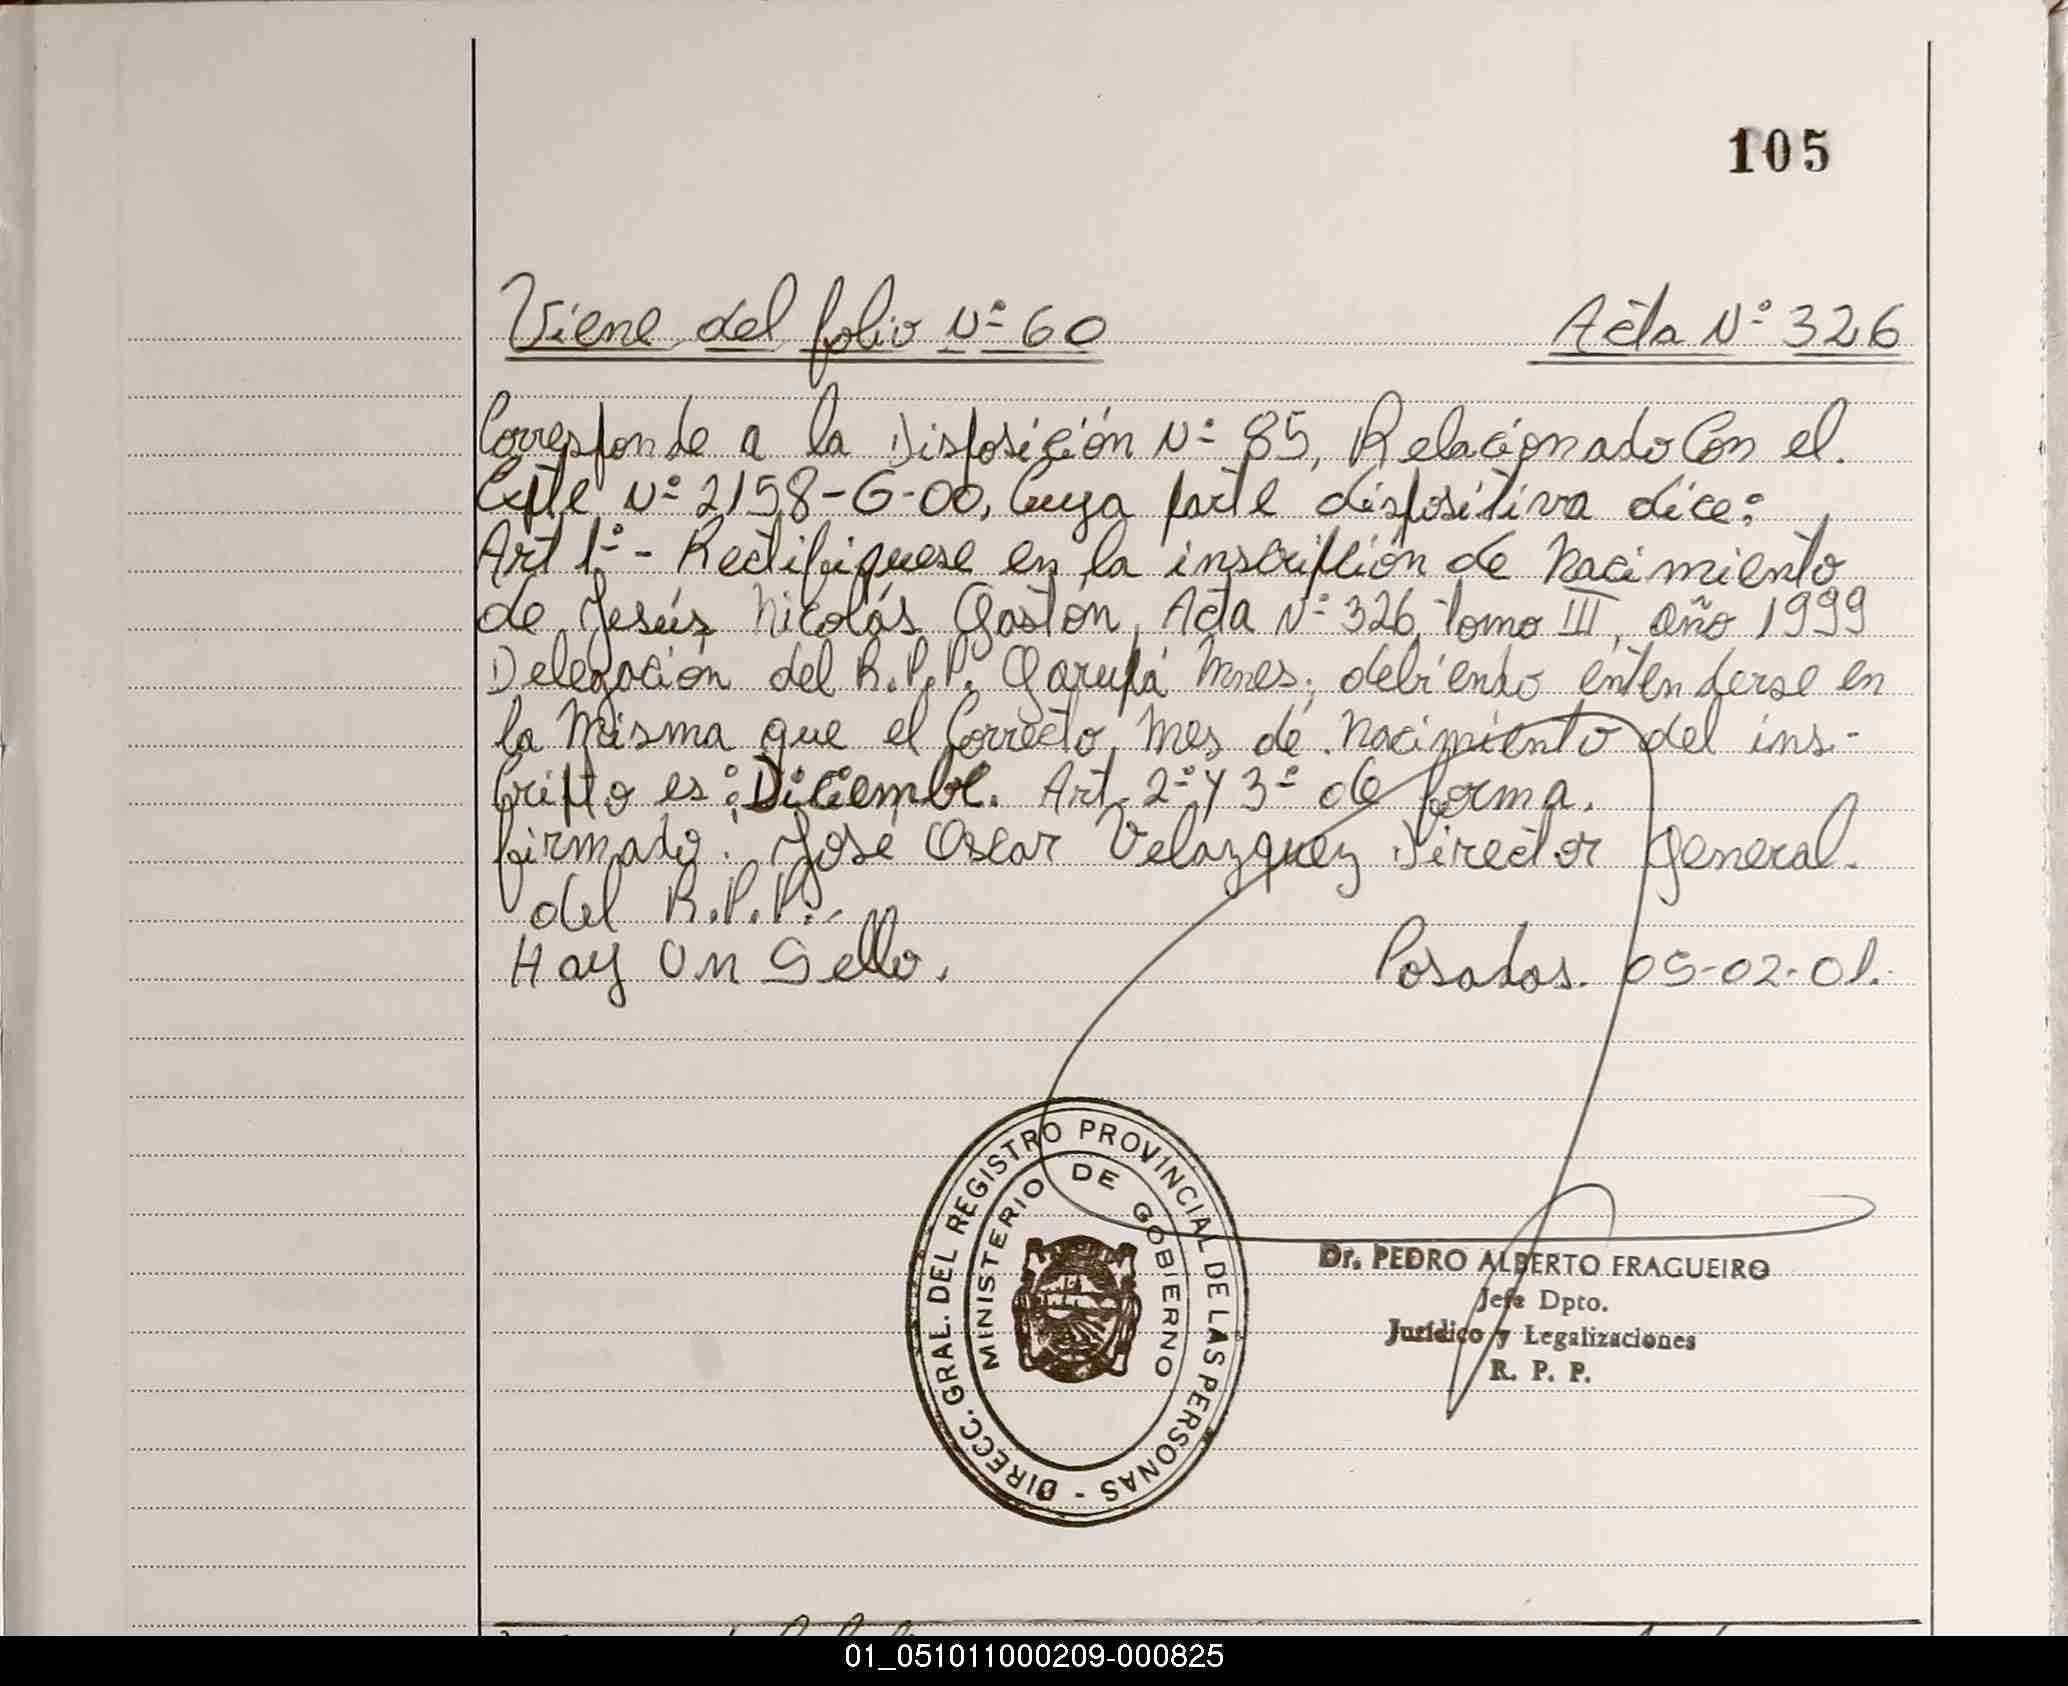 105
Viene del folio Nº 60 Acta Nº 326
Corresponde a la Disposición Nº 85, Relacionado Con el.
Expte Nº 2158-G-00, Cuya parte dispositiva dice:
Art 1º - Rectifiquese en la inscripción de Nacimiento
de Jesús Nicolás Gastón, Acta Nº 326 tomo III, año 1999
Delegación del R.P.P. Garupá Mnes; debiendo entenderse en
la Misma que el Correcto Mes de Nacimiento del ins-
cripto es: Diciembre. Art. 2º y 3º de forma.
firmado: José Oscar Velazquez Director General.
del R.P.P.-
Hay Un Sello. Posadas. 05-02-01.
DIRECC. GRAL. DEL REGISTRO PROVINCIAL DE LAS PERSONAS -
MINISTERIO DE GOBIERNO
Dr. PEDRO ALBERTO FRAGUEIRO
Jefe Dpto.
Jurídico y Legalizaciones
R. P. P.
01_051011000209-000825